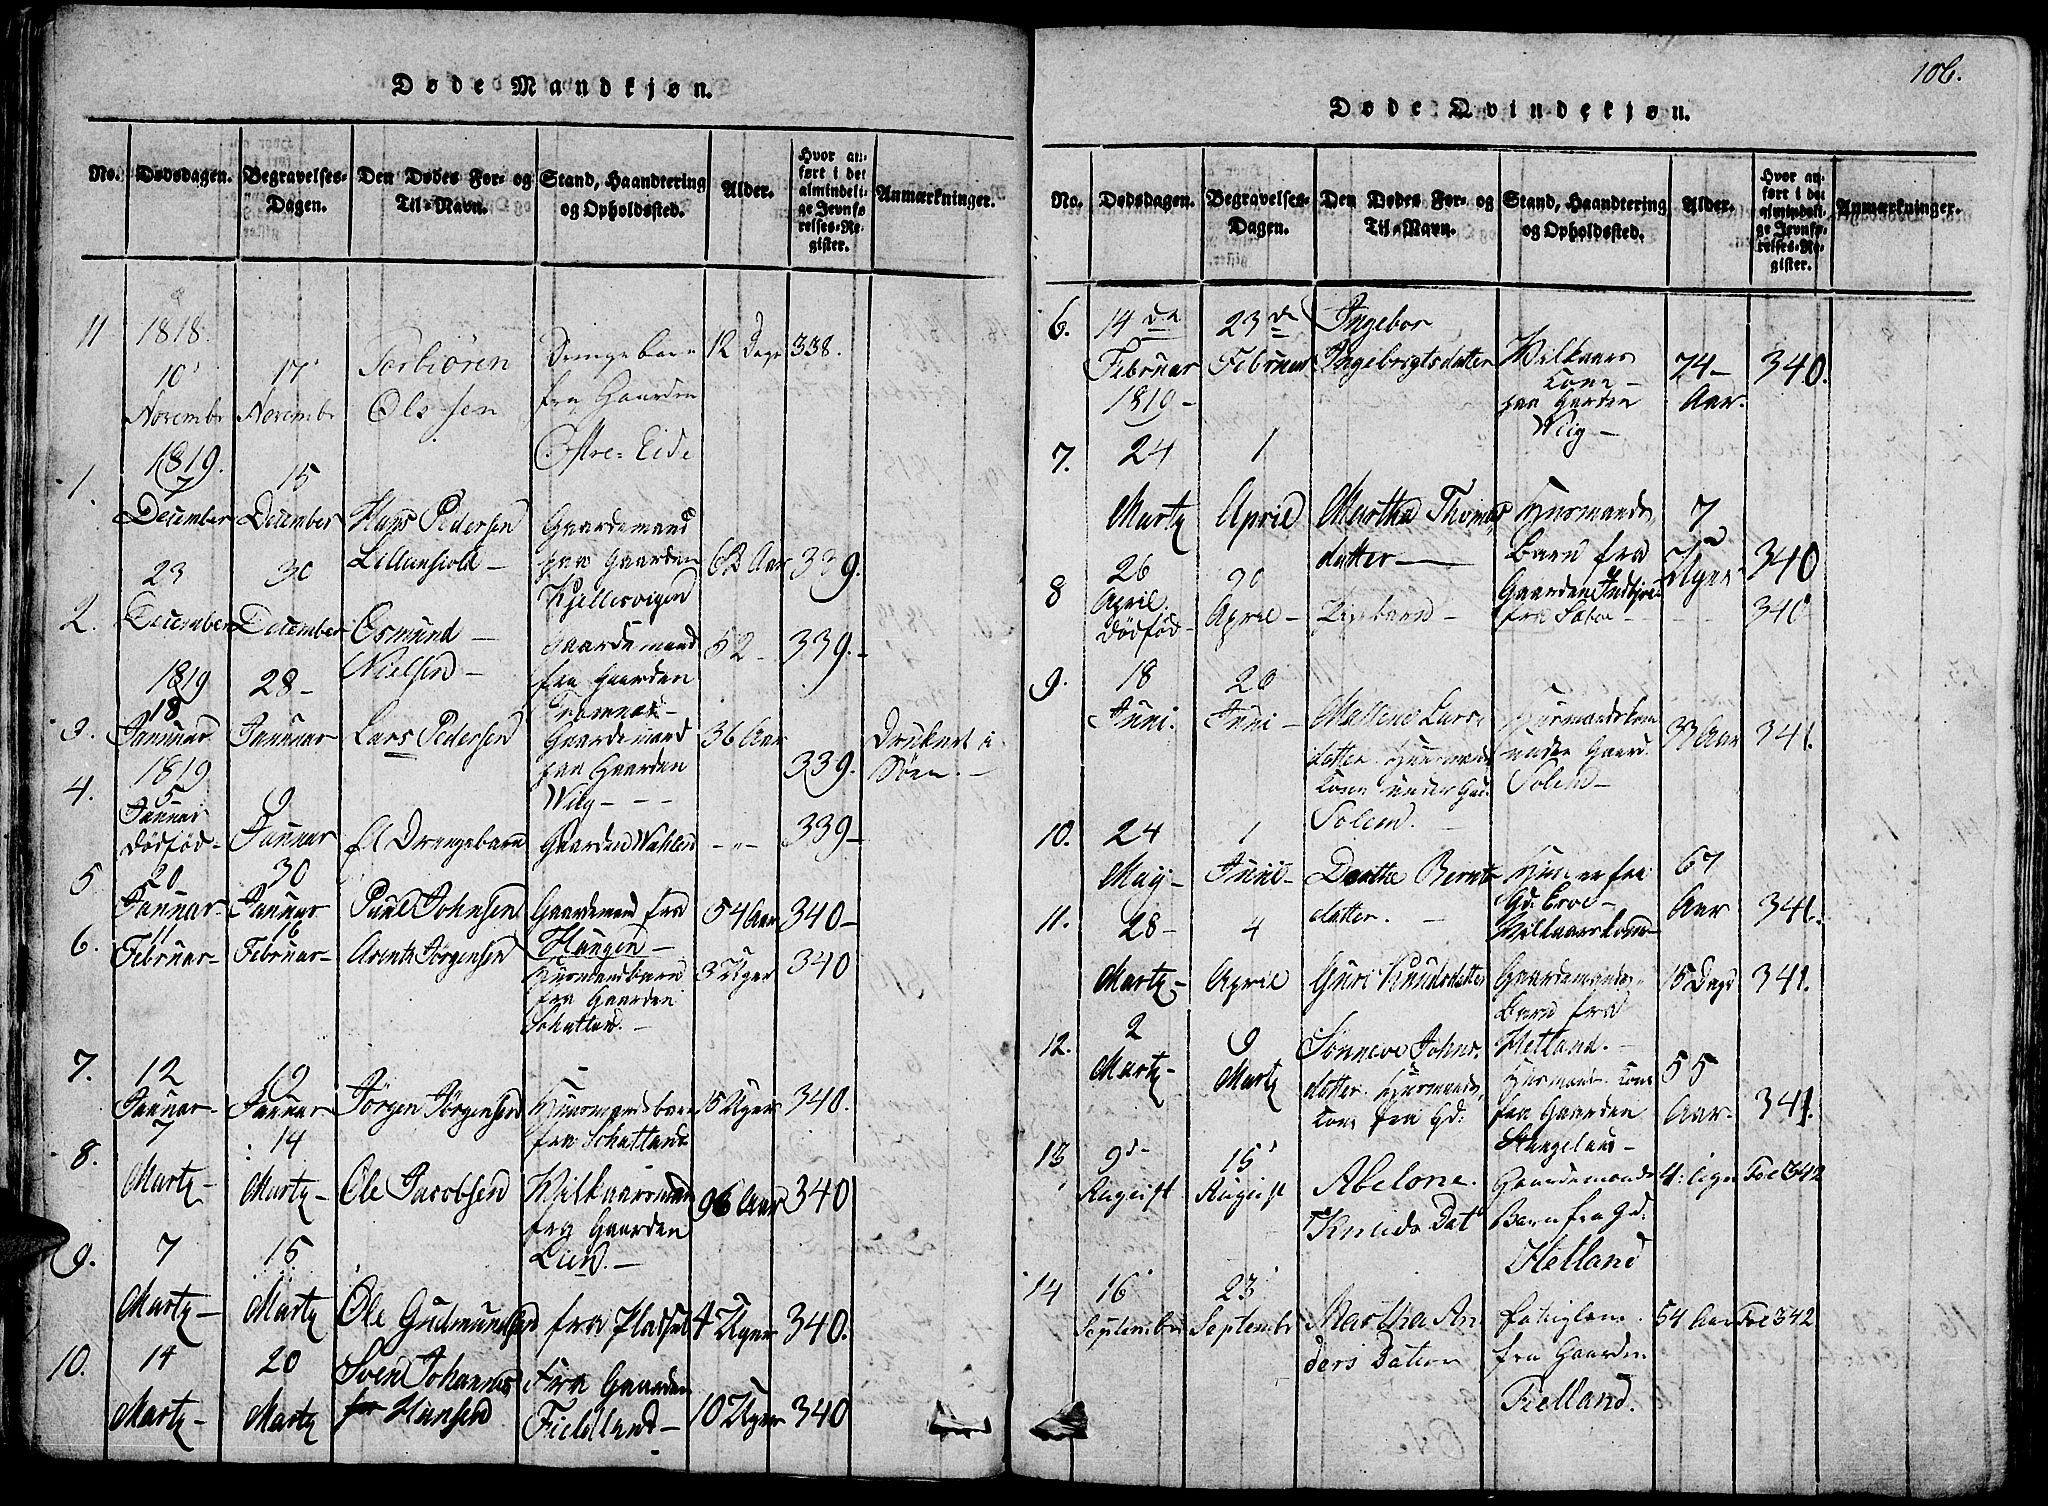 Døde Mandkjøn.
No. Dødsdagen. Begravelses-Dagen. Den Dødes For- og Til-Navn. Stand, Haandtering og Opholdssted. Alder. Hvor anført i det almindelige Jevnførelses-Register. Anmærkninger.
11 1818. 10 November 17 November Torbiören Olssen Drengebarn fra Gaarden Østre-Eide 12 Dage 338.
1. 1819. 7 December 15 December Hans Pedersen Gaardemand paa Gaarden 62 Aar 339.
2. 23 December 30 December Osmund Nielsen Gaardemand fra Gaarden 52 339.
3. 1819 18 Januar 28 Januar Lars Pedersen Gaardemand paa Gaarden Wiig 36 Aar 339. Druknet i Søen.
4. 1819 5 Januar dödföd 9 Januar et Drengebarn Gaarden Wahlen 339
5 20 Januar 30 Januar Poul Johnsen Gaardemand fra Haugen 54 Aar 340
6. 11 Februar 16 Februar Arent Jörgensen Huusmandsbarn fra Gaarden 3 Uger 340
7. 12 Januar 12 Januar Jörgen Jörgensen Huusmandsbarn fra 5 Uger 340.
8. 7 Martz 14 Martz Ole Jacobsen Wilkaarsmand fra Gaarden Lien. 96 Aar 340
9. 7 Martz 15 Martz Ole Gudmundsen fra Pladsen 4 Uger 340.
10. 14 Martz 20 Martz Sven Johannes Hansen Fra Gaarden Fieldland 10 Uger 340
106.
Døde Qvindekjøn.
No. Dødsdagen. Begravelses-Dagen. Den Dødes For- og Til-Navn. Stand, Haandtering og Opholdssted. Alder. Hvor anført i det almindelige Jevnførelses-Register. Anmærkninger.
6. 14de Februar 1819 23de Februar Ingebor Ingebrigtsdatter Wilkaars Kone paa Garden Wiig 74 Aar. 340.
7. 24 Martz 1 April Martha Thomas datter Huusmands Barn fra Gaarden 7 Uger 340
8 26 April. dödföd 30 April Pigebarn fra 340
9. 18 Juni 26 Juni Lars datter Huusmands Kone under Solem. Huusmandskone under Gaard. Solem 33 Aar 341.
10. 24 May 1 Junii Dorthe Bernts datter. fra Gd. Wilkaarskone 67 Aar 341.
11. 28 Martz 4 April Guri Knudsdatter Gaardemands Barn fra Hetland. 15 Dage 341.
12. 2 Martz 9 Martz Sönneve Johns datter Huusmands Kone fra Gd: Huusmands Kone fra Gaarden Stangeland 55 Aar 341.
13 9 August 15 August Abelone Knuds Dat Gaardemands Barn fra Gd: Hetland Fol 342
14 16 September 23 September Martha Anders Datter fra Gaarden Fielland. 54 Aar Fol 342